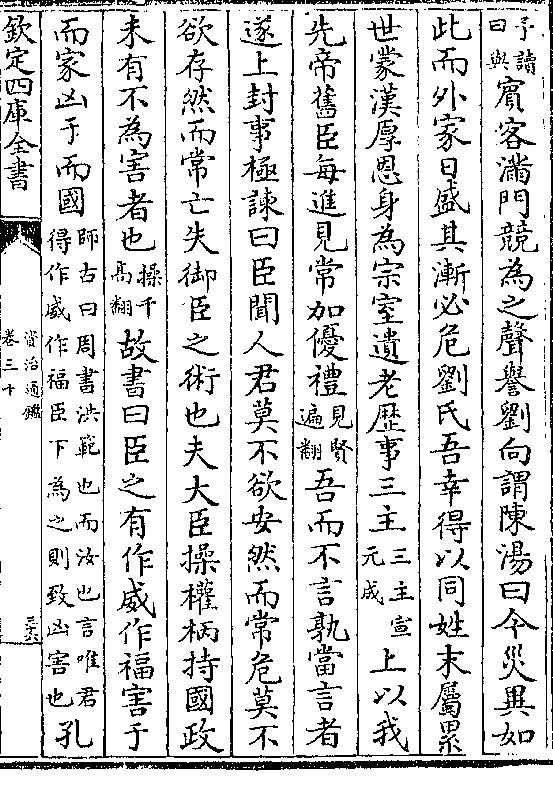 予讀曰與賓客滿門競為之聲譽劉向謂陳湯曰今災異如
此而外家日盛其漸必危劉氏吾幸得以同姓末屬累
世蒙漢厚恩身為宗室遺老歷事三主三主宣元成上以我
先帝舊臣每進見常加優禮見賢遍翻吾而不言孰當言者
遂上封事極諫曰臣聞人君莫不欲安然而常危莫不
欲存然而常亡失御臣之術也夫大臣操權柄持國政
未有不為害者也操千高翻故書曰臣之有作威作福害于
而家凶于而國師古曰周書洪範也而汝也言唯君得作威作福臣下為之則致凶害也孔
欽定四庫全書
資治通鑑
卷三十